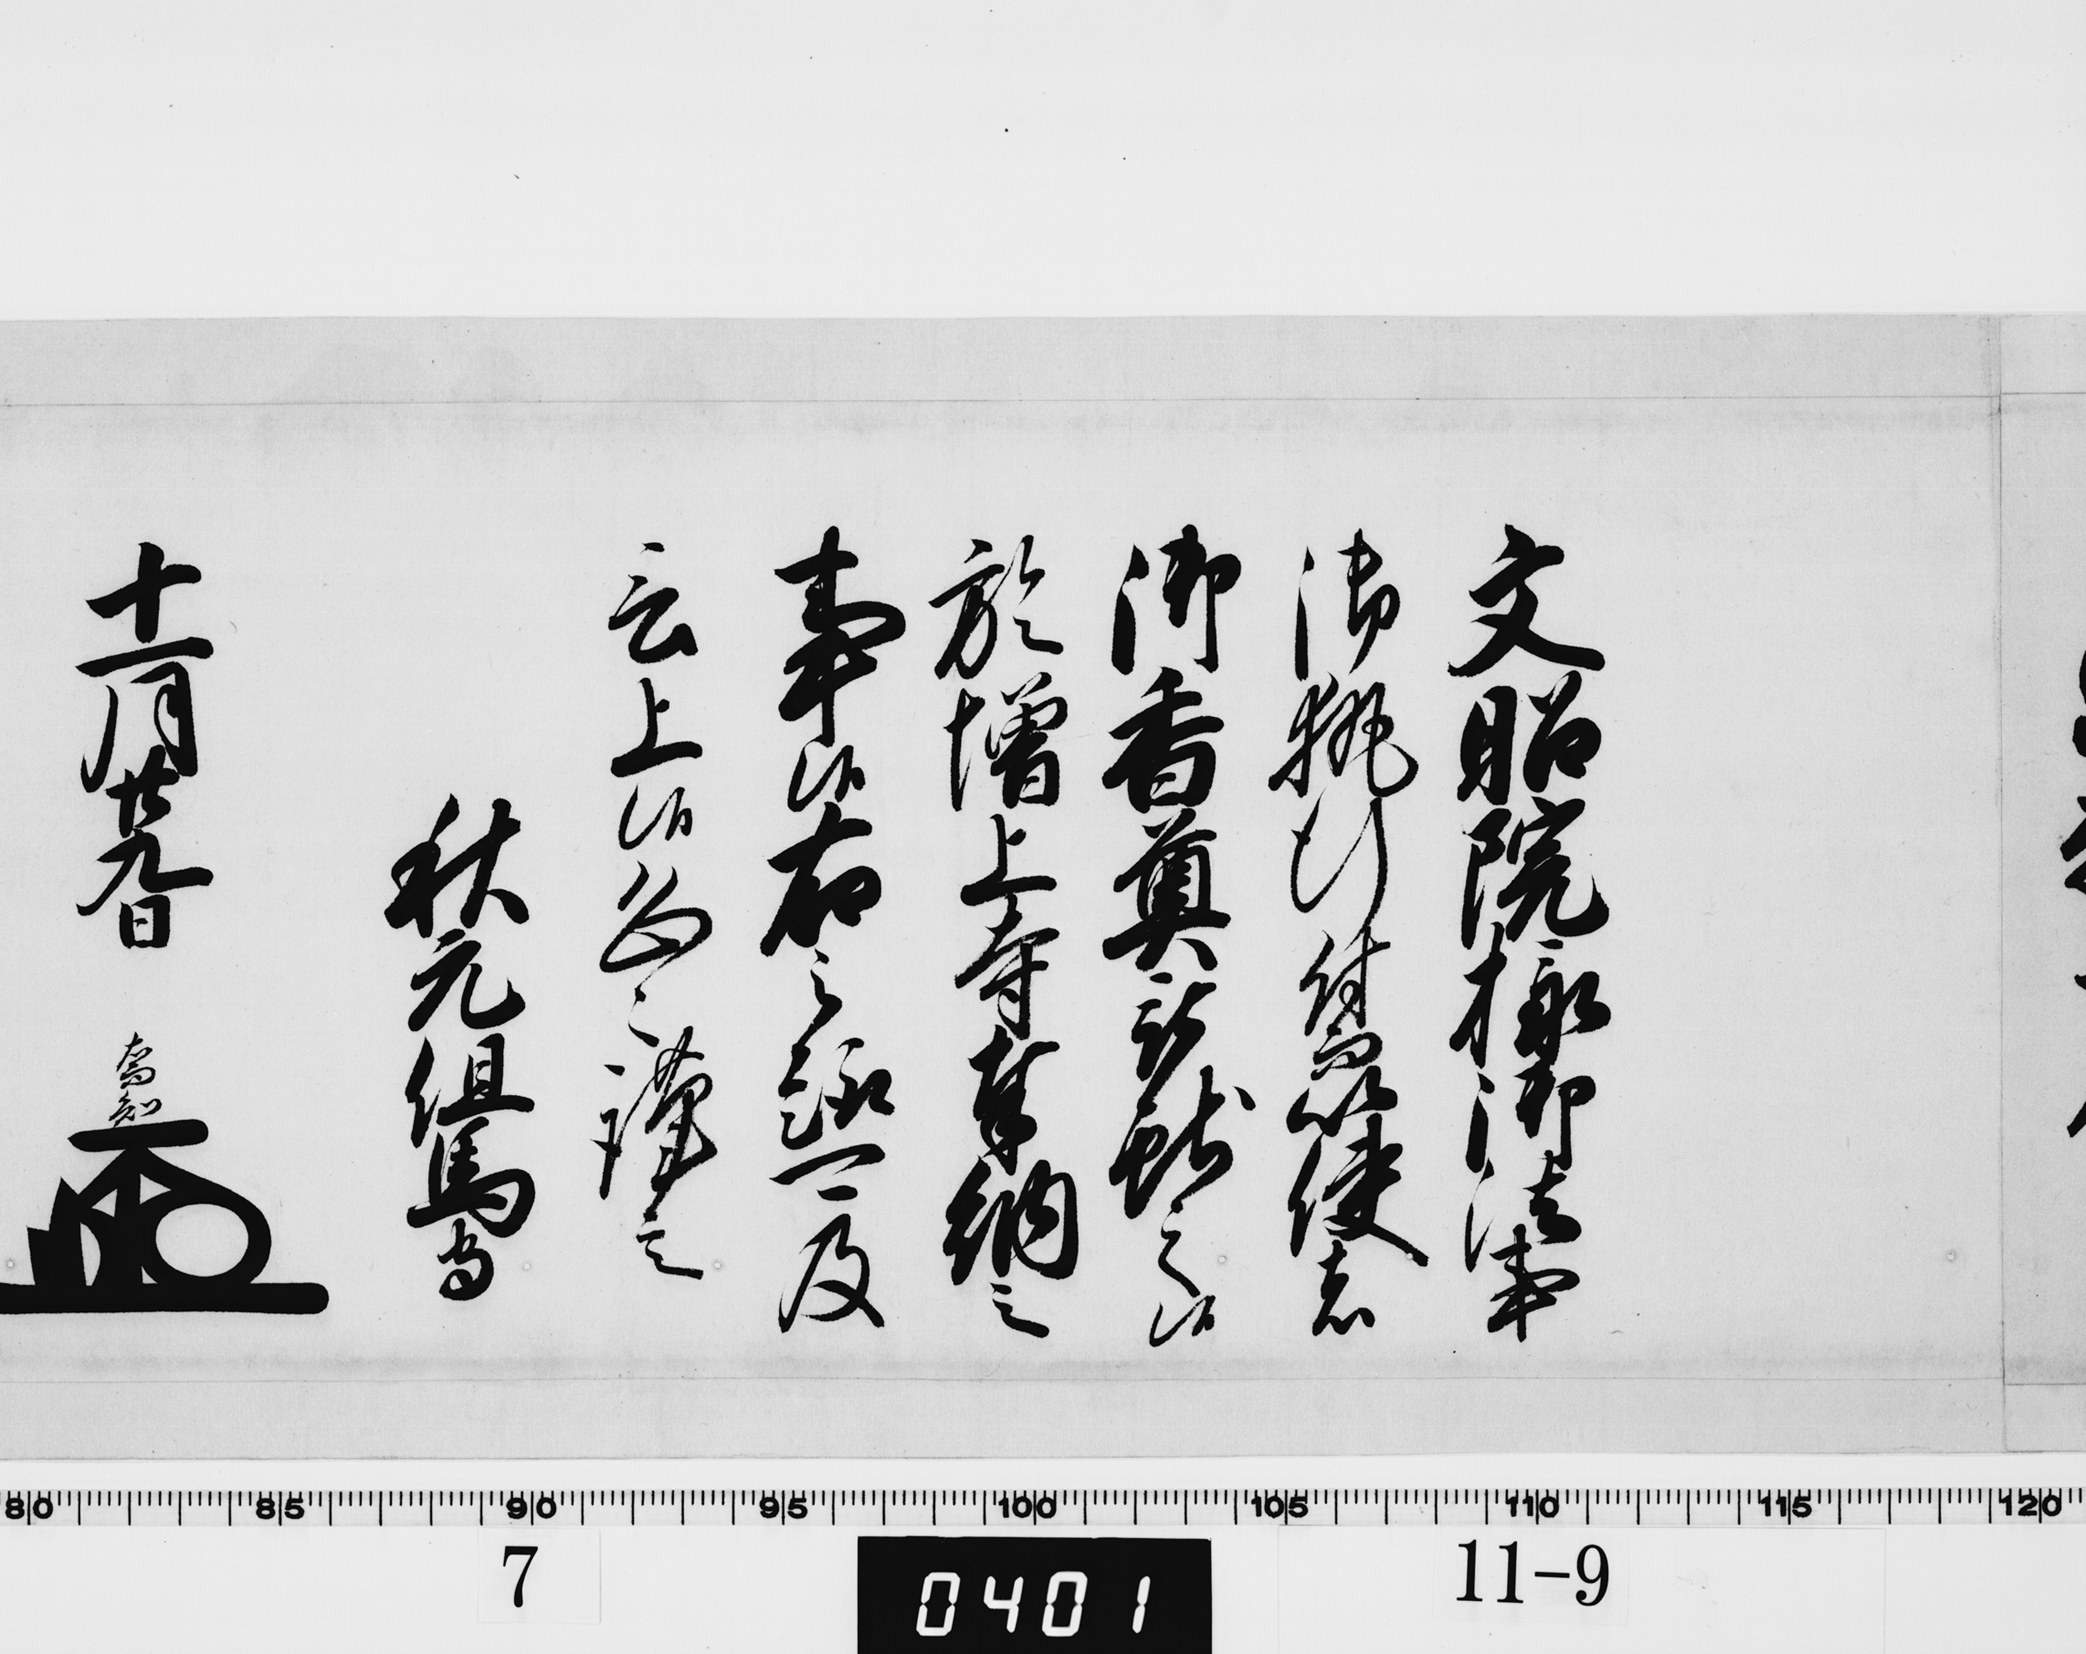 文昭院様御法事
御執行付而以使者
御香奠被献之候
於増上寺奉納之
事候右之趣可及
言上候恐々謹言
秋元但馬守
十一月廿九日
喬知
80 85 90 95 100 105 110 115 120
7 0401 11-9